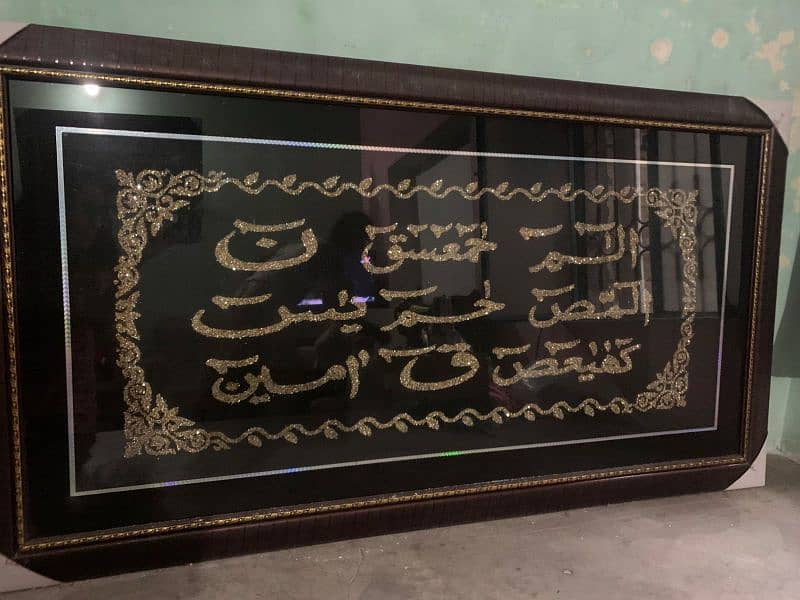 الٓمّٓ حٰمٓعٓسٓقٓ نٓ
الٓمّٓصٓ حٰمٓ يٰسٓ
كٓهٰيٰعٓصٓ قٓ اٰمين